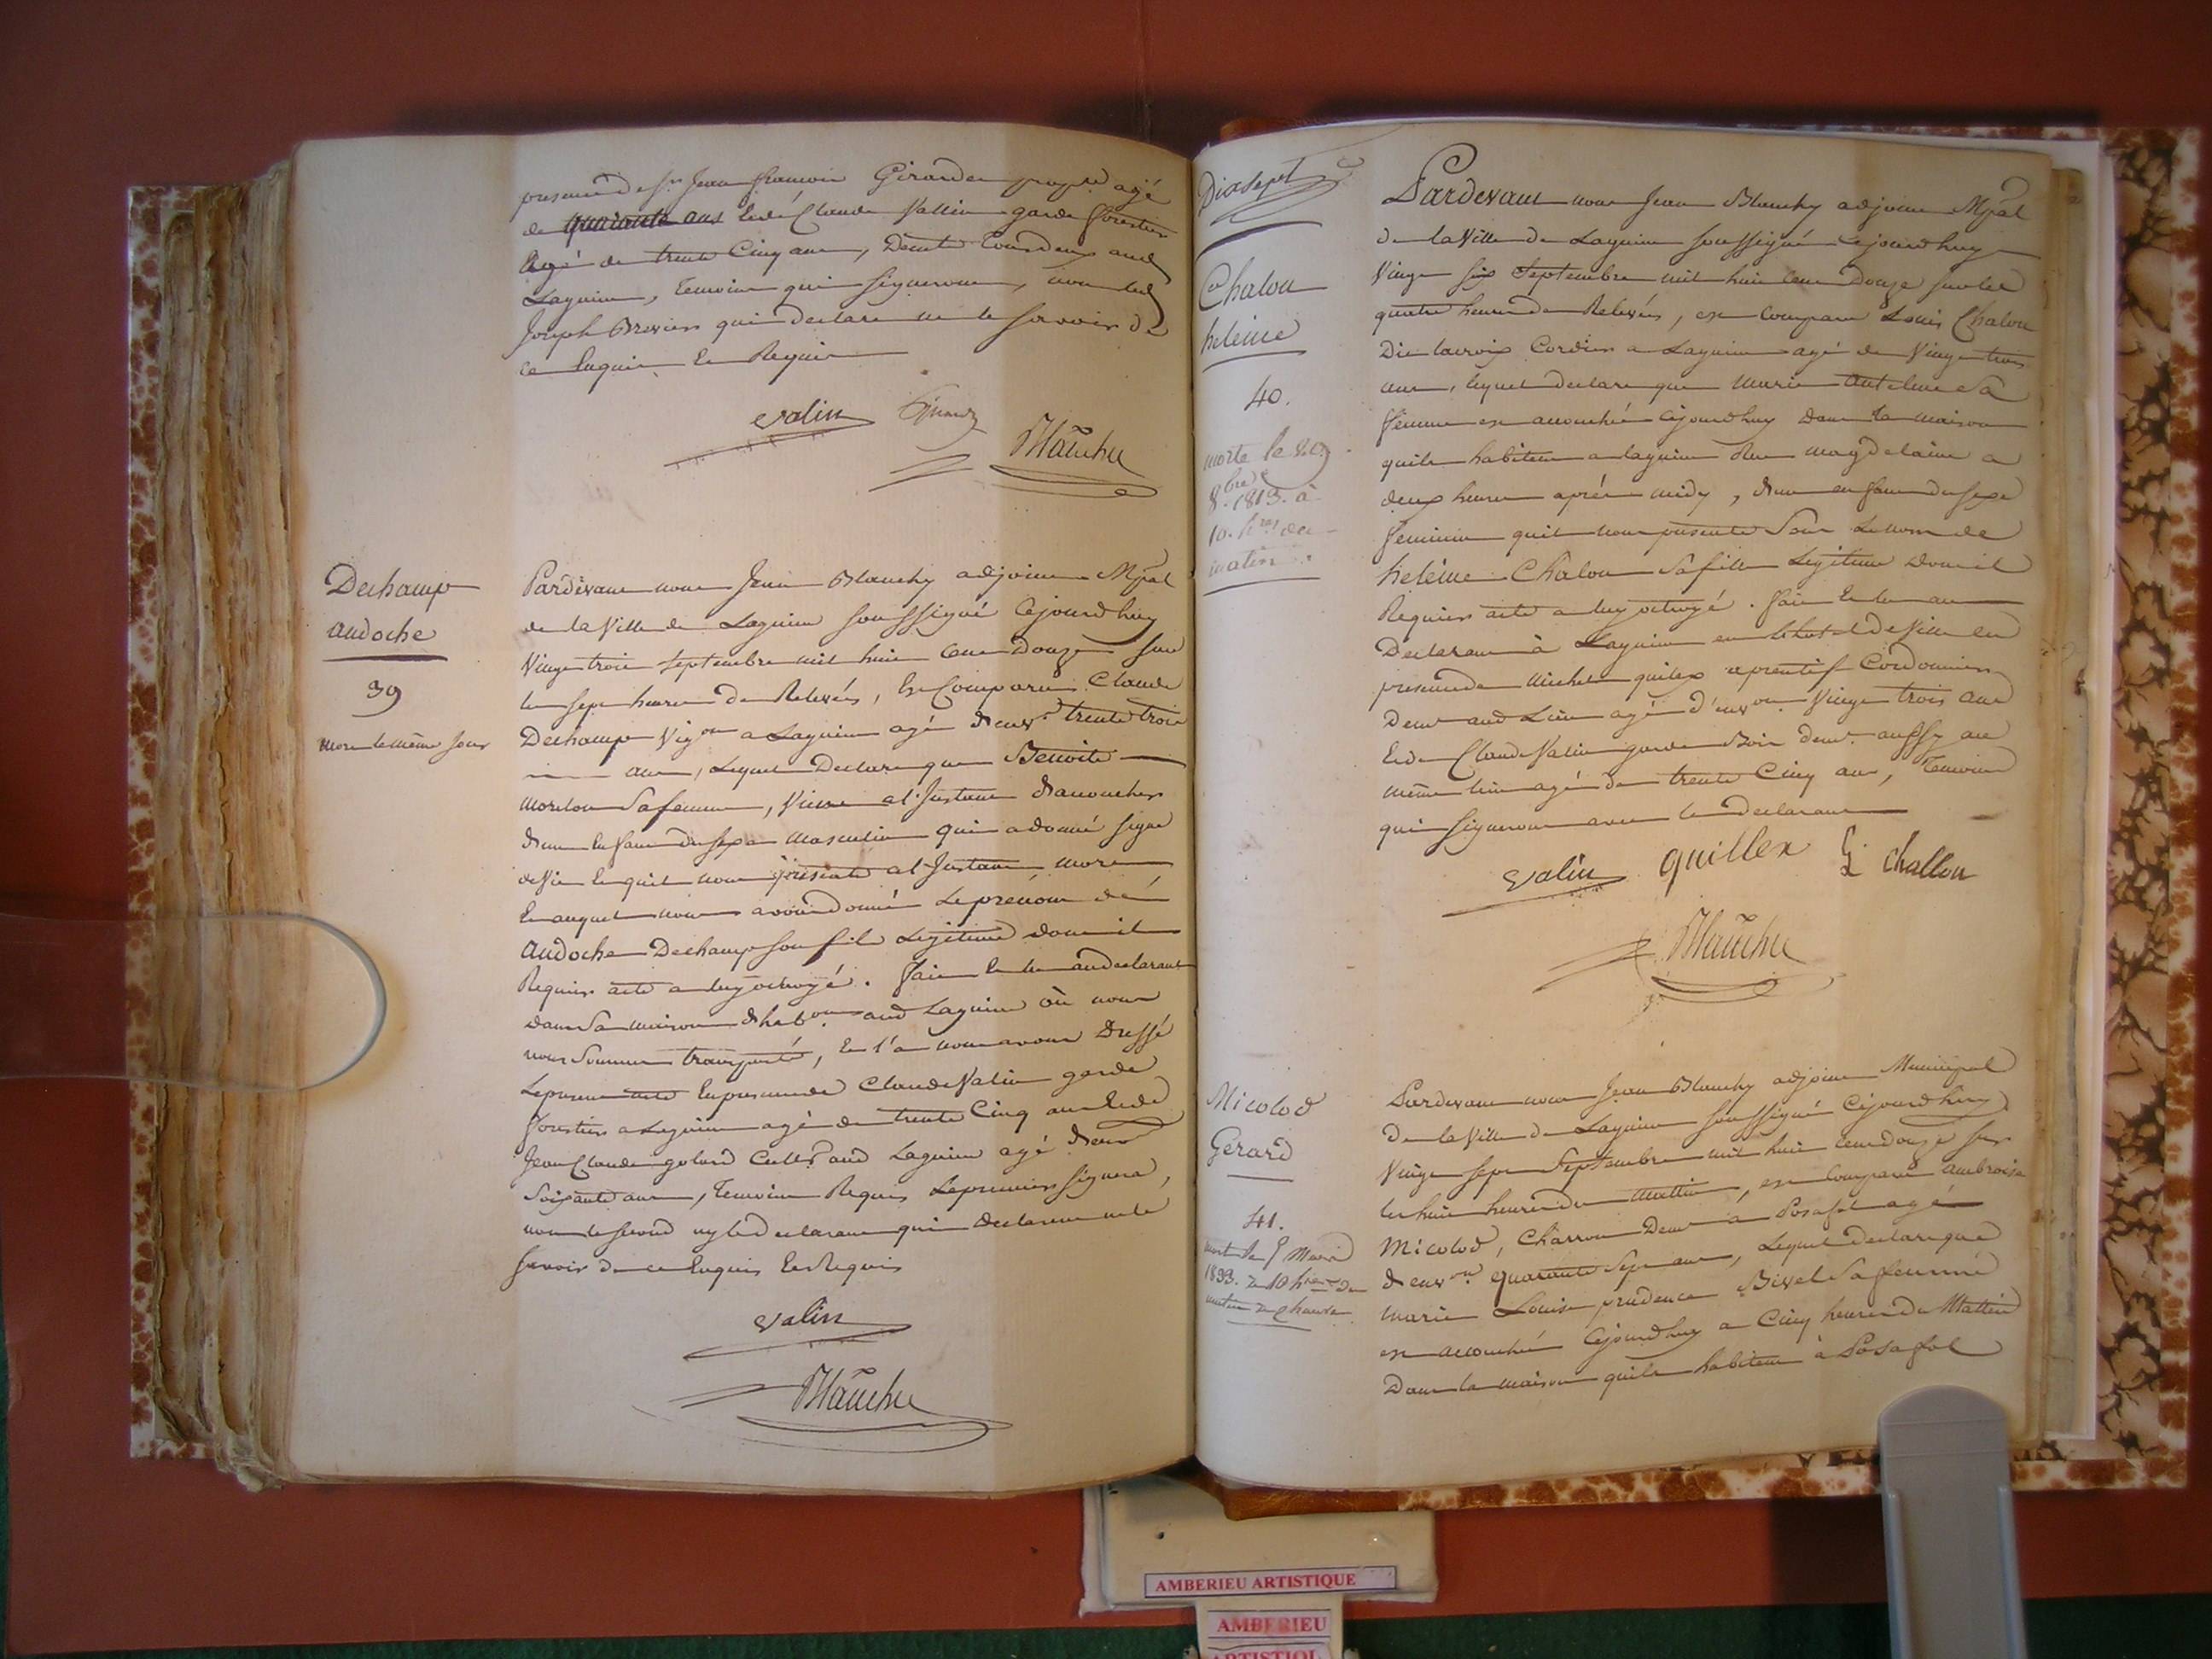 presence de Sr Jean francois Girard propre agé
de quarante ans et de Claude Vallin garde forestier
agé de trente Cinq ans, Demt tous deux aud
Lagnieu, Temoins qui signeront, non led
Joseph qui declare ne le savoir de
ce Enquis et Requis
valin Girard
Blanchy
Dechamp
andoche
39
mort le même jour
Pardevant nous Jean Blanchy adjoint Mpal
de la Ville de Lagnieu soussigné Cejourdhuy
Vingt trois septembre mil huit Cent Douze sur
les sept heures de Relevées, Est Comparu Claude
Dechamp Vigon a Lagnieu agé d'envn trente trois
ans, Lequel Declare que Benoite
morelon Sa femme, Vient a l'Instant d'accoucher
d'un Enfant du sexe masculin qui a donné signe
de Vie Et quil nous presente a l'Instant mort
Et auquel nous avons donné Le prénom de
andoche Dechamp son fils Légitime dont il
Requiert acte a luy octroyé. fait Et lu au declarant
dans Sa maison d'habon aud Lagnieu où nous
nous Sommes transporté, Et l'a nous avons Dressé
Le present acte En presence de Claude Valin garde
forestier a Lagnieu agé de trente Cinq ans Et de
Jean Claude golard Cultr aud Lagnieu agé d'env
Soixante ans, Temoins Requis Le premier signera,
non le second ny le declarant qui declarent ne le
savoir de ce Enquis Et Requis
valin
Blanchy
Dixsept
Chalon
heléine
40.
morte le
8bre 1813. à
10. hres du
matin.
Pardevant nous Jean Blanchy adjoint Mpal
de la Ville de Lagnieu soussigné Cejourdhuy
Vingt six Septembre mil huit Cent Douze sur les
quatre heures de Relevées, est Comparu Louis Chalon
Dit lacroix Cordier a Lagnieu agé de Vingt trois
ans, lequel declare que Marie antelme Sa
femme est accouchée Cejourdhuy Dans la maison
quils habitent a lagnieu Rue magdelaine a
deux heures après midy, d'un enfant du sexe
feminin quil nous presente Sous Le nom de
heléine Chalon Sa fille Légitime dont il
Requiert acte a luy octroyé. fait Et lu au
Declarant à Lagnieu en lehotel de Ville en
presence de Michel quilex aprentif Cordonnier
Demt aud Lieu agé d'envon Vingt trois ans
Et de Claude Valin garde Bois demt aussy au
même lieu agé de trente Cinq ans, Temoins
qui signeront avec le Declarant
valin quillex L challon
Blanchy
Micolod
Gerard
41.
mort le Mars
1833. a 10 hres du
matin
Pardevant nous Jean Blanchy adjoint Municipal
de la Ville de Lagnieu soussigné Cejourdhuy
Vingt sept Septembre mil huit Cent douze sur
les huit heures du mattin, est Comparu ambroise
Micolod, Charron Demt a Posafol agé
d'envon quarante Sept ans, Lequel declare que
marie Louise prudence Bivel Sa femme
est accouchée Cejourdhuy a Cinq heures du Mattin
Dans la maison quils habitent à Posafol
AMBERIEU ARTISTIQUE
AMBERIEU